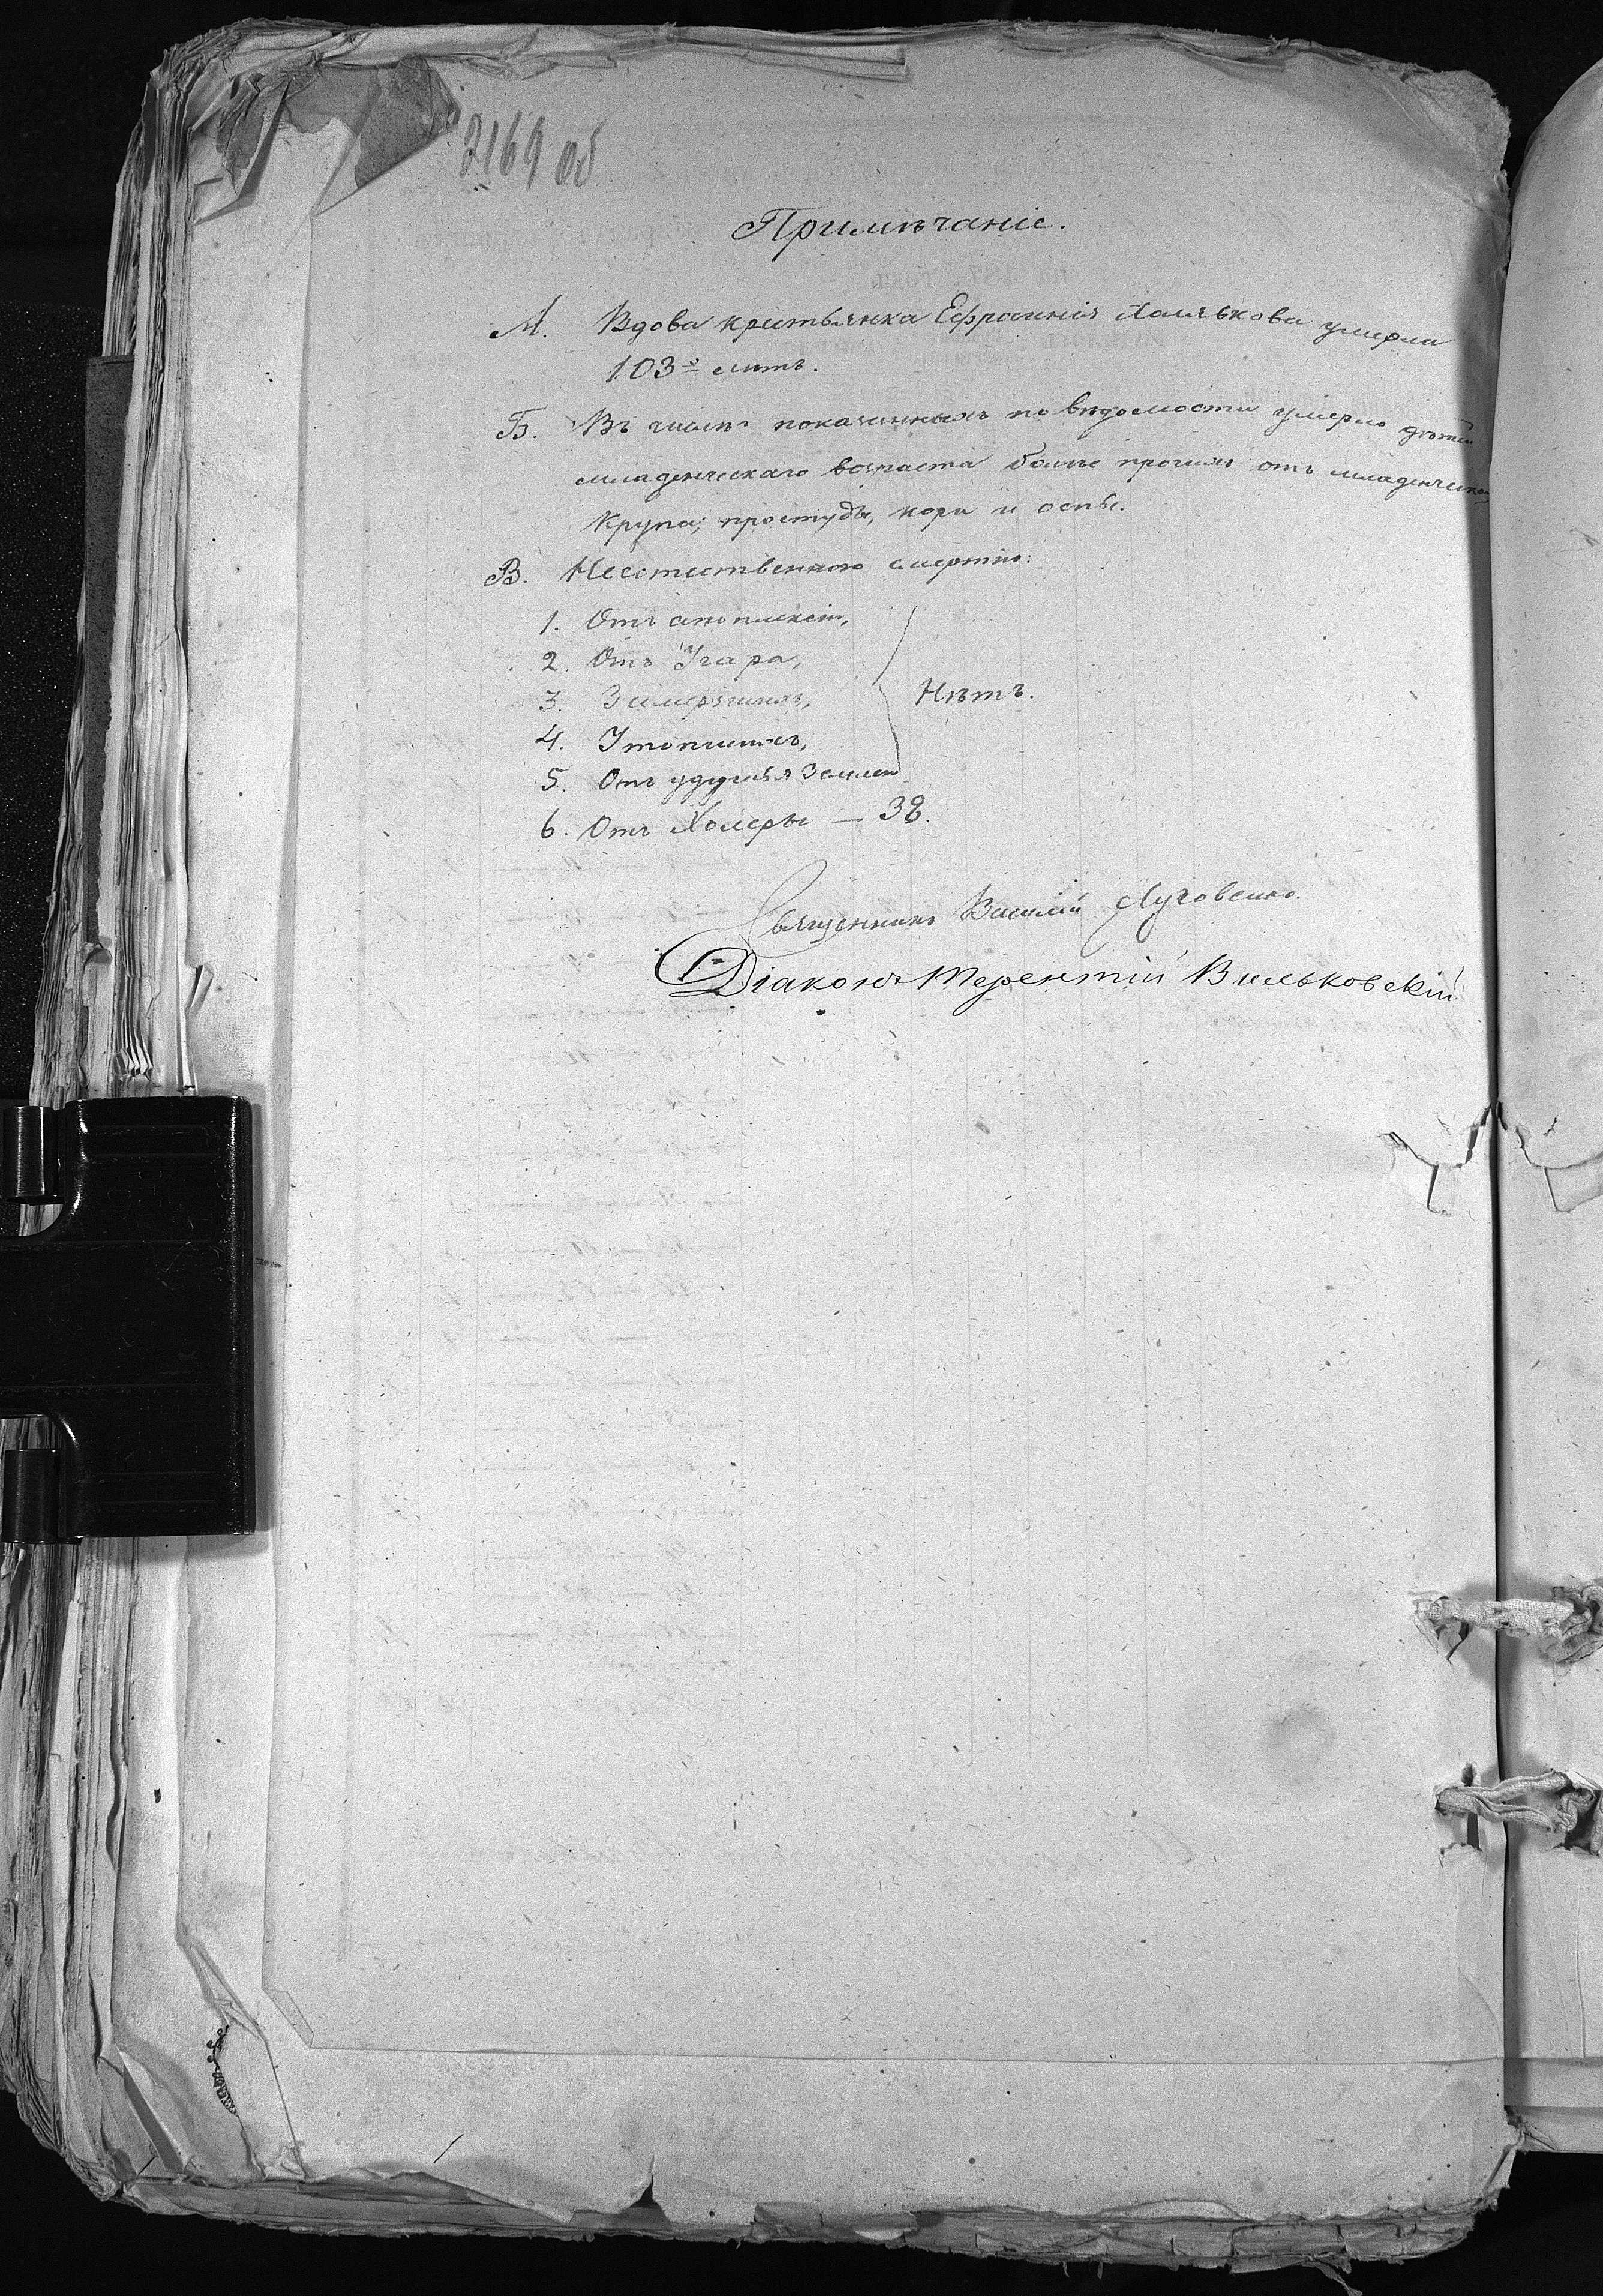 2169 об
Примѣчаніе.
А. Вдова крестьянка Ефросинія умерла
103-х лѣтъ.
Б. Въ числѣ показанныхъ по вѣдомости умерло дѣтей
младенческаго возраста болѣе прочихъ отъ младенческой
Крупа, простуды, кори и оспы.
В. Неестественною смертію:
1. Отъ апоплексіи,
2. Отъ Угара,
3. Замерзшихъ,
4. Утопшихъ,
5. Отъ удушья Землею
Нѣтъ.
6. Отъ Холеры — 38.
Священникъ Василій
Діаконъ Терентій Вильковскій